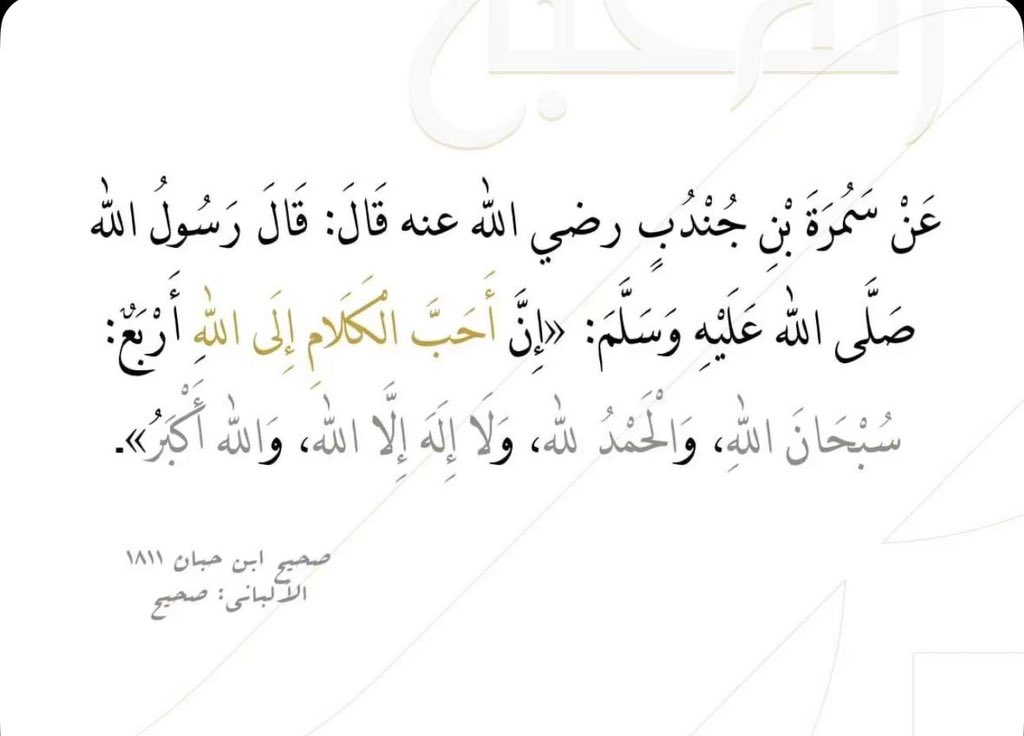 عَنْ سَمُرَةَ بْنِ جُنْدُبٍ رضي الله عنه قَالَ: قَالَ رَسُولُ الله
صَلَّى الله عَلَيْهِ وَسَلَّمَ: «إِنَّ أَحَبَّ الْكَلَامِ إِلَى اللهِ أَرْبَعٌ:
سُبْحَانَ اللهِ، وَالْحَمْدُ لله، وَلَا إِلَهَ إِلَّا الله، وَالله أَكْبَرُ».
صحيح ابن حبان ١٨١١
الألباني: صحيح